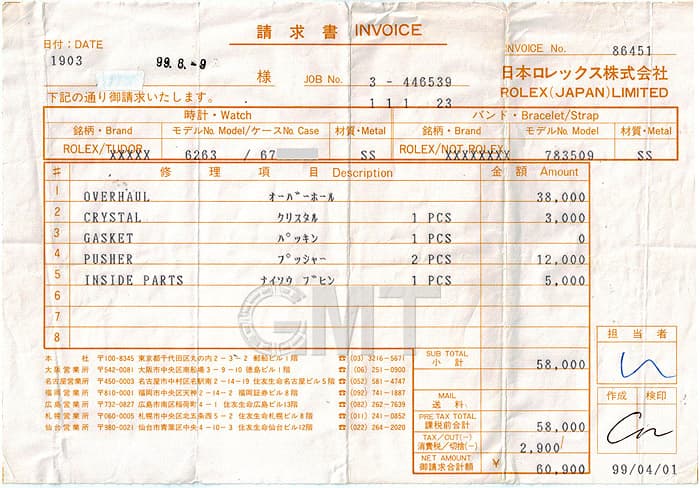 請求書 INVOICE
日付：DATE
INVOICE No. 86451
1903 99.6.-9
様 JOB No. 3 - 446539
日本ロレックス株式会社
ROLEX(JAPAN)LIMITED
下記の通り御請求いたします。
1 1 1 23
時計・Watch バンド・Bracelet/Strap
銘柄・Brand モデルNo. Model/ケースNo. Case 材質・Metal 銘柄・Brand モデルNo. Model 材質・Metal
ROLEX/TUDOR XXXXX 6263 / 67 SS ROLEX/NOT ROLEX XXXXXXXX 783509 SS
# 修理項目 Description 金額 Amount
1 OVERHAUL オーバーホール 38,000
2 CRYSTAL クリスタル 1 PCS 3,000
3 GASKET パッキン 1 PCS 0
4 PUSHER プッシャー 2 PCS 12,000
5 INSIDE PARTS ナイソウ ブヒン 1 PCS 5,000
6
7
8
GMT
本社 〒100-8345 東京都千代田区丸の内2-3-2 郵船ビル1階 ☎(03) 3216-5671
大阪営業所 〒542-0081 大阪市中央区南船場3-9-10 徳島ビル1階 ☎(06) 251-0900
名古屋営業所 〒450-0003 名古屋市中村区名駅南2-14-19 住友生命名古屋ビル5階 ☎(052) 581-4747
福岡営業所 〒810-0001 福岡市中央区天神2-14-2 福岡証券ビル8階 ☎(092) 741-1887
広島営業所 〒732-0827 広島市南区稲荷町4-1 住友生命広島ビル13階 ☎(082) 262-7639
札幌営業所 〒060-0005 札幌市中央区北五条西5-2 住友生命札幌ビル8階 ☎(011) 241-0852
仙台営業所 〒980-0021 仙台市青葉区中央4-10-3 住友生命仙台ビル12階 ☎(022) 264-2020
SUB TOTAL
小計 58,000
MAIL
送料
PRE TAX TOTAL
課税前合計 58,000
TAX/CUT(-)
消費税/切捨(-) 2,900
NET AMOUNT
御請求合計額 ¥ 60,900
担当者
作成 検印
99/04/01